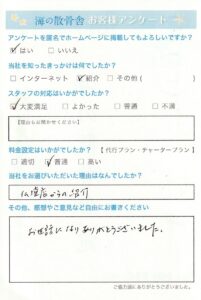 海の散骨舎 お客様アンケート
アンケートを匿名でホームページに掲載してもよろしいですか?
☑はい □いいえ
当社を知ったきっかけは何でしたか?
□インターネット ☑紹介 □その他( )
スタッフの対応はいかがでしたか?
☑大変満足 □よかった □普通 □不満
【理由もお聞かせください】
料金設定はいかがでしたか? 【代行プラン・チャータープラン】
□適切 ☑普通 □高い
当社をお選びいただいた理由はなんでしたか?
仏壇店からの紹介
その他、感想やご意見など自由にお書きください
お世話になりありがとうございました。
ご協力誠にありがとうございました。